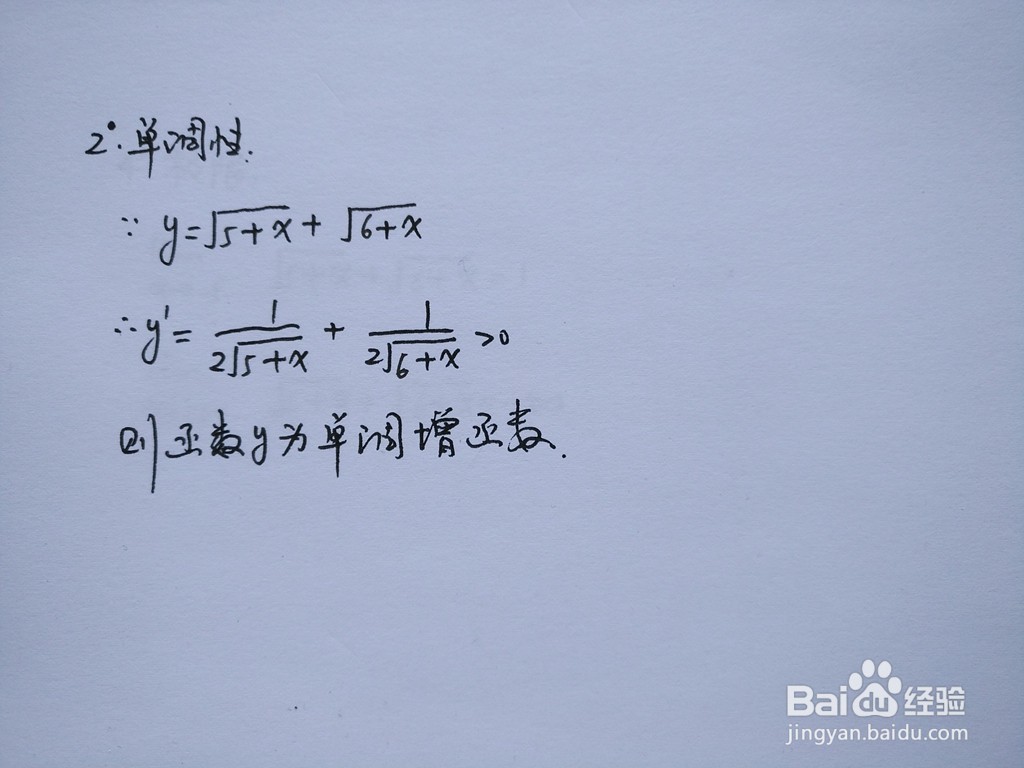 2°.单调性.
∵ y=√5+x + √6+x
∴ y'= 1/2√5+x + 1/2√6+x >0
则函数y为单调增函数.
Baidu经验
jingyan.baidu.com